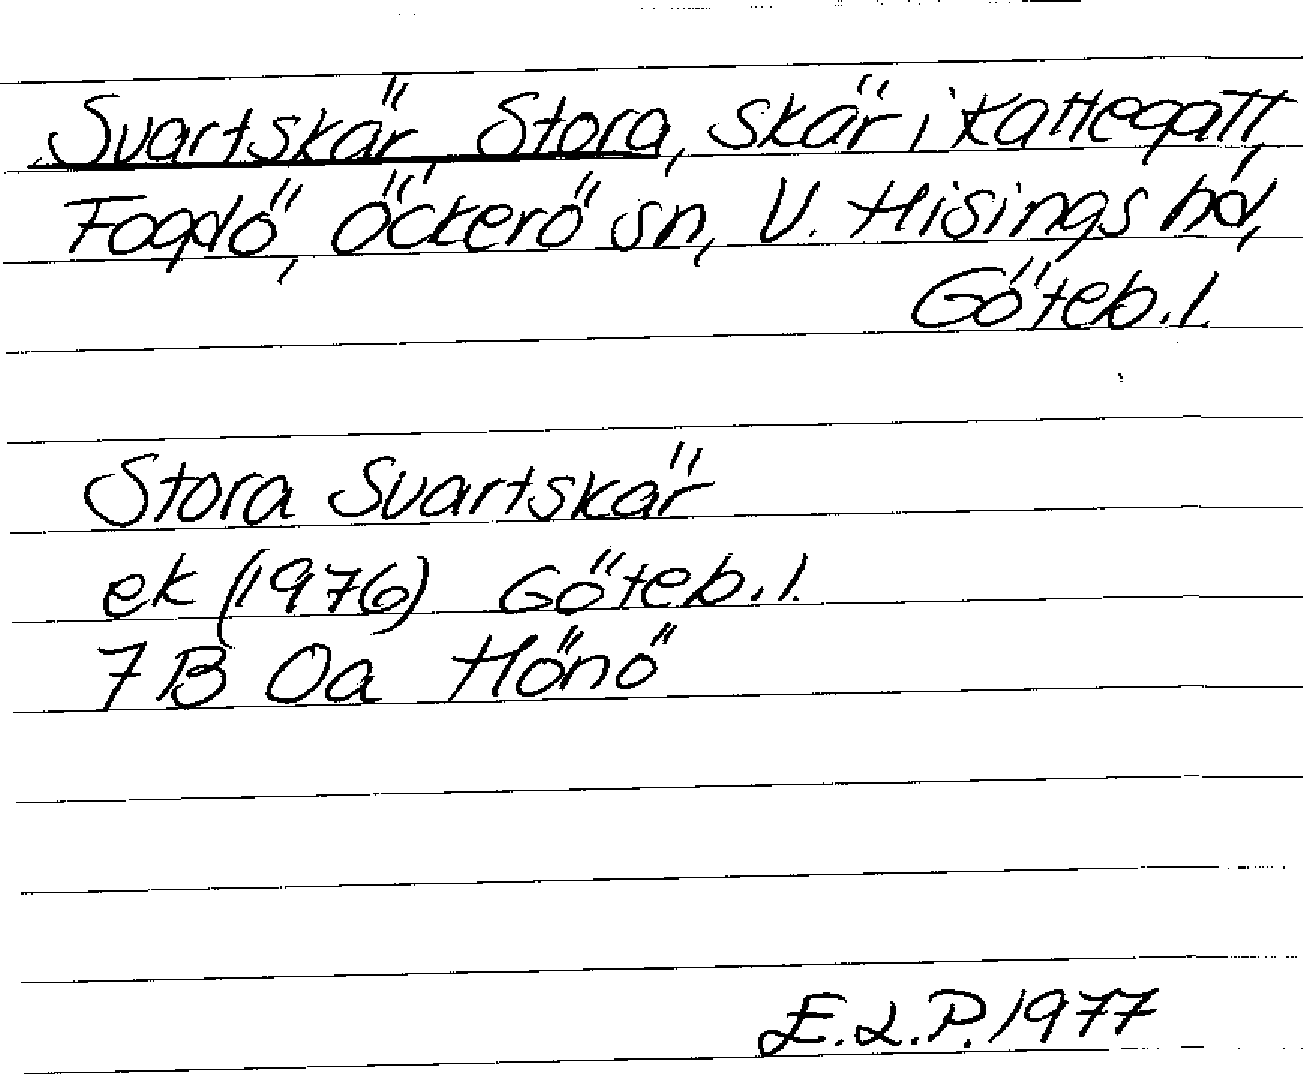 Svartskär Stora, skär i Kattegatt,
Fogdö, Öckerö sn, V. Hisings hd,
Göteb. l.
Stora Svartskär
ek (1976) Göteb. l.
7 B 0a Hönö
E.L.P. 1977